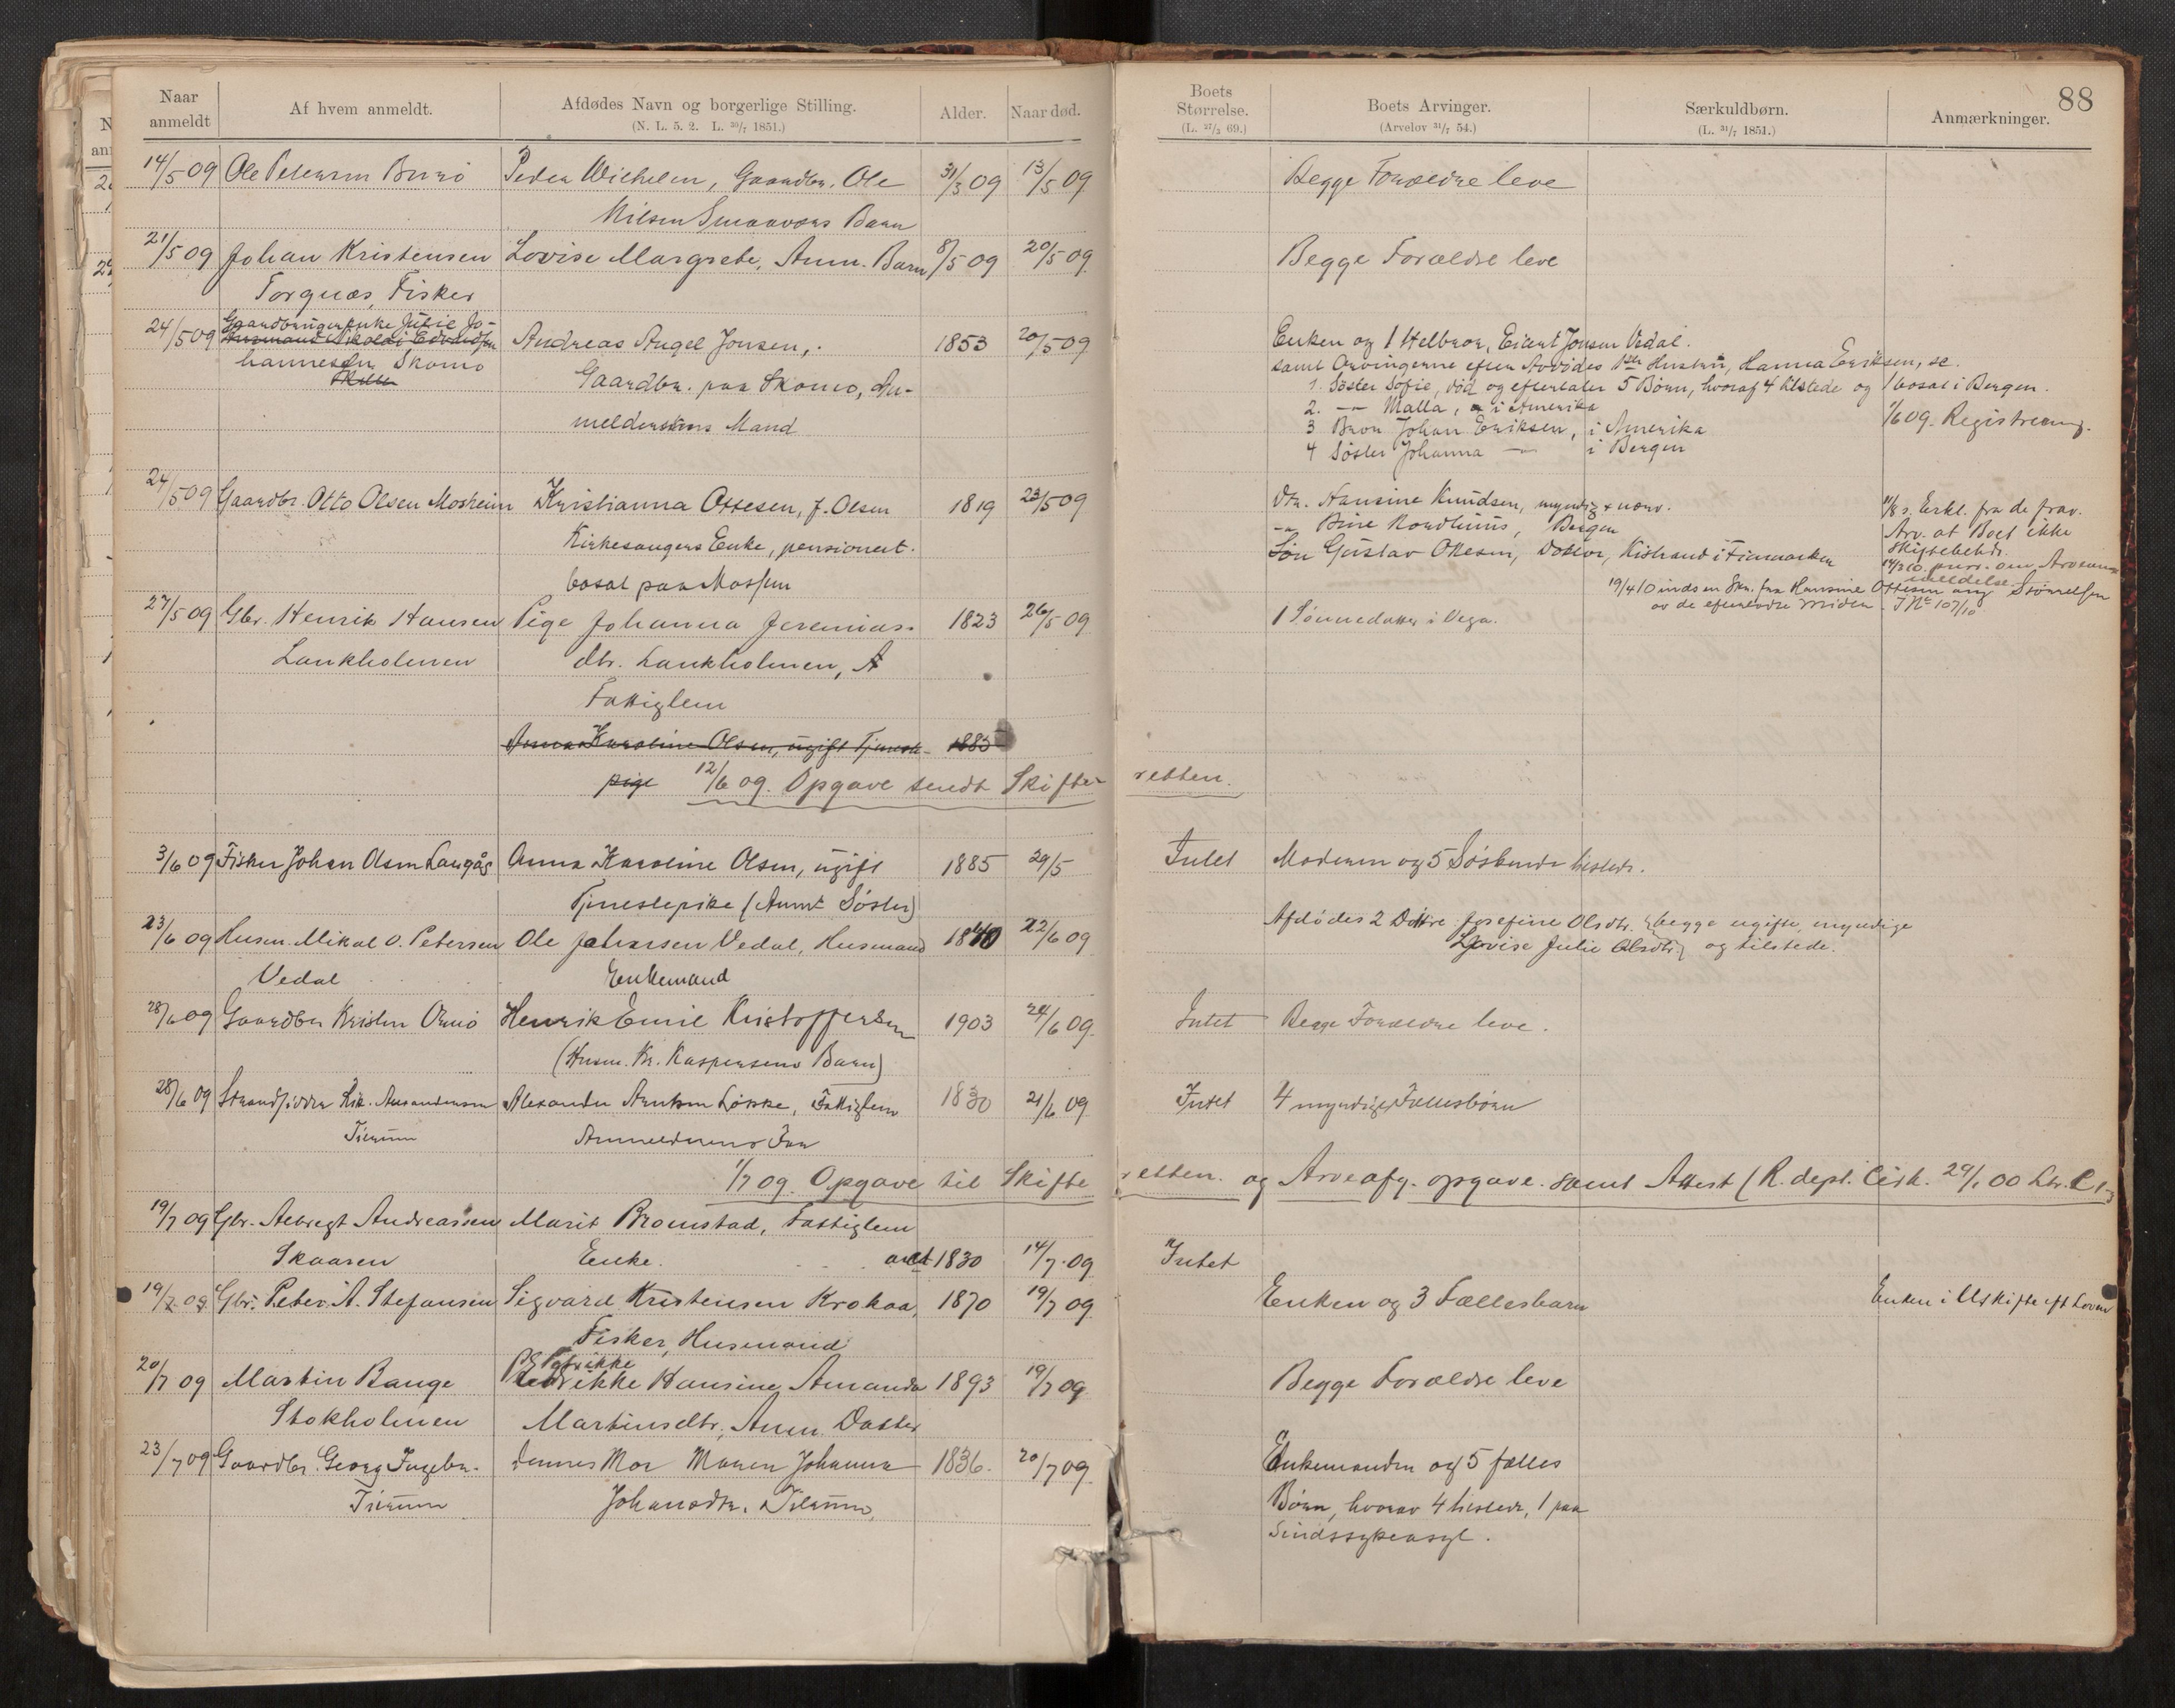 Naar anmeldt
Af hvem anmeldt.
Afdødes Navn og borgerlige Stilling.
(N. L. 5. 2. L. 30/7 1851.)
Alder.
Naar død.
Boets Størrelse.
(L. 27/3 69.)
Boets Arvinger.
(Arvelov 31/7 54.)
Særkuldbørn.
(L. 31/7 1851.)
Anmærkninger.
88
14/5 09 Ole Petersen Burø Peder Wichelm, Gaardbr. Ole 31/3 09 13/5 09 Begge Forældre leve
Nilsen Smaaværs Barn
21/5 09 Johan Kristensen Lovise Margrete, Anm. Barn 8/5 09 20/5 09 Begge Forældre leve
Torgnæs, Fisker
24/5 09 Gaardbrugerenke Julie Jo-
Husmand Nikolai Edvardsen
hannesdr, Skomo
Andreas Angel Jonsen, 1853 20/5 09
Gaardbr. paa Skomo, An-
melderskens Mand
Enken og 1 Helbror, Eiert Jonsen Vedal.
samt Arvingerne efter Avdødes 1ste Hustru, Hanna Eriksen, se.
1. Søster Sofie, død og efterlater 5 Børn, hvoraf 4 tilstede og 1 bosat i Bergen.
2. -"- Malla, i Amerika
3 Bror Johan Eriksen, i Amerika
4 Søster Johanna -"- i Bergen
1/6 09. Registrering.
24/5 09 Gaardbr. Otto Olsen Mosheim Kristianna Ottesen, f. Olsen 1819 23/5 09
Kirkesangers Enke, pensionert.
bosat paa Mossem
Dtr. Hansine Knudsen, myndig + nærv.
-"- Bine Rondhuus, Bergen
Søn Gustav Ottesen, Doktor, Kistrand i Finmarken
11/8 s. Erkl. fra de frav.
Arv. at Boet ikke
skiftebeh.
14/3 10. purr. om Arveanmeldelse
19/4 10 indsen Skr. fra Hansine Ottesen ang Størrelsen
av de efterladte Midler. J No 107/10
27/5 09 Gbr. Henrik Hansen Pige Johanna Jeremias- 1823 26/5 09 1 Sønnedatter i Vega.
Lankholmen dtr. Lankholmen,
Fattiglem
Anna Karoline Olsen, ugift Tjeneste- 1885
pige 12/6 09. Opgave sendt Skifteretten.
3/6 09 Fisker Johan Olsen Langås Anna Karoline Olsen, ugift 1885 29/5 Intet Moderen og 5 Søskende tilstede.
Tjenestepike (Anmt Søster)
23/6 09 Husm. Mikal O. Petersen Ole Johansen Vedal, Husmand 1840 22/6 09
Vedal Enkemand
Afdødes 2 Døttre Josefine Olsdtr. } begge ugifte, myndige
Lovise Julie Olsdtr. } og tilstede.
28/6 09 Gaardbr Kristen Ormø Henrik Emil Kristoffersen 1903 24/6 09. Intet Begge Forældre leve.
(Husm. Kr. Kaspersens Barn)
28/6 09 Strandsidder Alexander Arntsen Løkke, Fattiglem 1830 21/6 09 Intet 4 myndige Fællesbørn
Tilrum Anmelderens Far
1/7 09. Opgave til Skifteretten. og Arveafg. opgave. samt Attest (R. dept. Cirk. 29/1 00 Lbr. C
19/7 09 Gbr. Albregt Andreassen Marit Bromstad, Fattiglem
Skaaren Enke. 1830 14/7 09 Intet
19/7 09 Gbr. Peter A. Stefansen Sigvard Kristensen Krokaa, 1870 19/7 09 Enken og 3 Fællesbarn Enken i Uskifte eft Loven
Fisker, Husmand
20/7 09 Martin Bange Petrikke Hansine Amanda 1893 19/7 09 Begge Forældre leve
Stokholmen Martinsdtr., Anm. Datter
23/7 09 Gaardbr. Georg Ingebr. dennes Mor Maren Johanna 1836. 20/7 09. Enkemanden og 5 fælles
Tilrum Johansdtr. Tilrum, Børn, hvorav 4 tilstede, 1 paa
Sindssykeasyl.